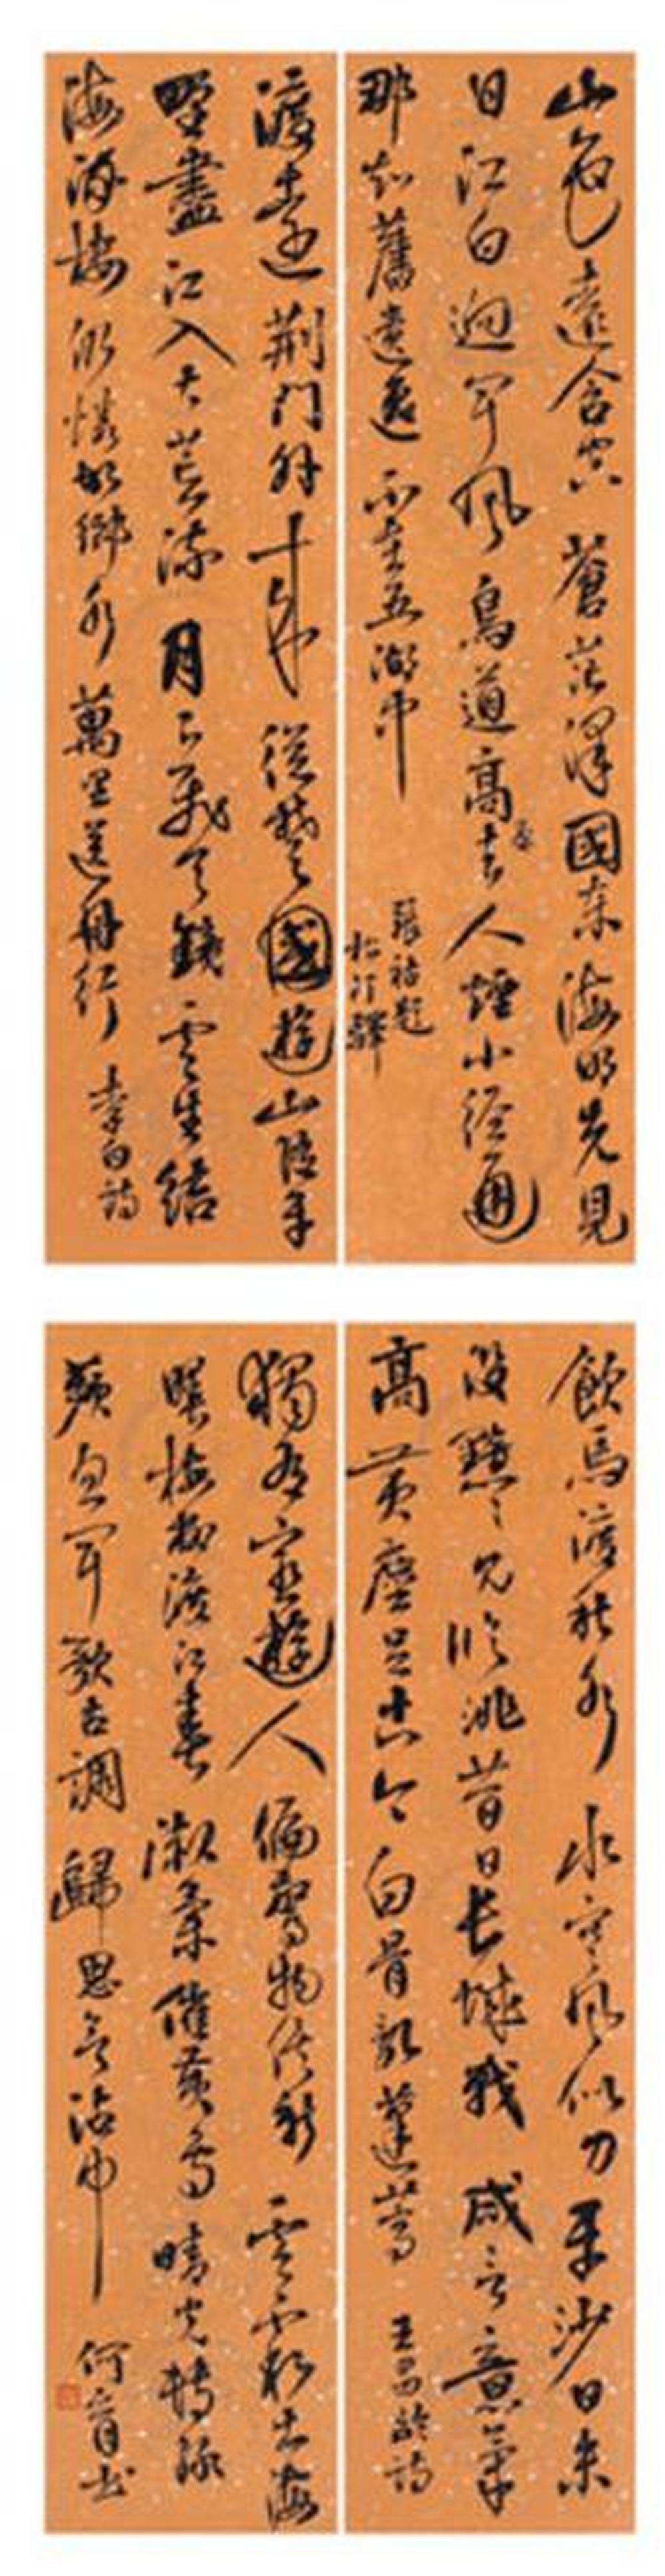 山色遠含空蒼茫澤國東海明先見
日江白迥聞風鳥道高原去人煙小徑通
那知舊遺逸不在五湖中
張祜題
松汀驛
渡遠荊門外來從楚國遊山隨平
野盡江入大荒流月下飛天鏡雲生結
海海樓仍憐故鄉水萬里送舟行 李白詩
飲馬渡秋水水寒風似刀平沙日未
沒黯〻見臨洮昔日長城戰咸言意氣
高黃塵足古今白骨亂蓬蒿 王昌齡詩
獨有宦遊人偏驚物候新雲霞出海
曙梅柳渡江春淑氣催黃鳥晴光轉綠
蘋忽聞歌古調歸思欲沾巾 何育書